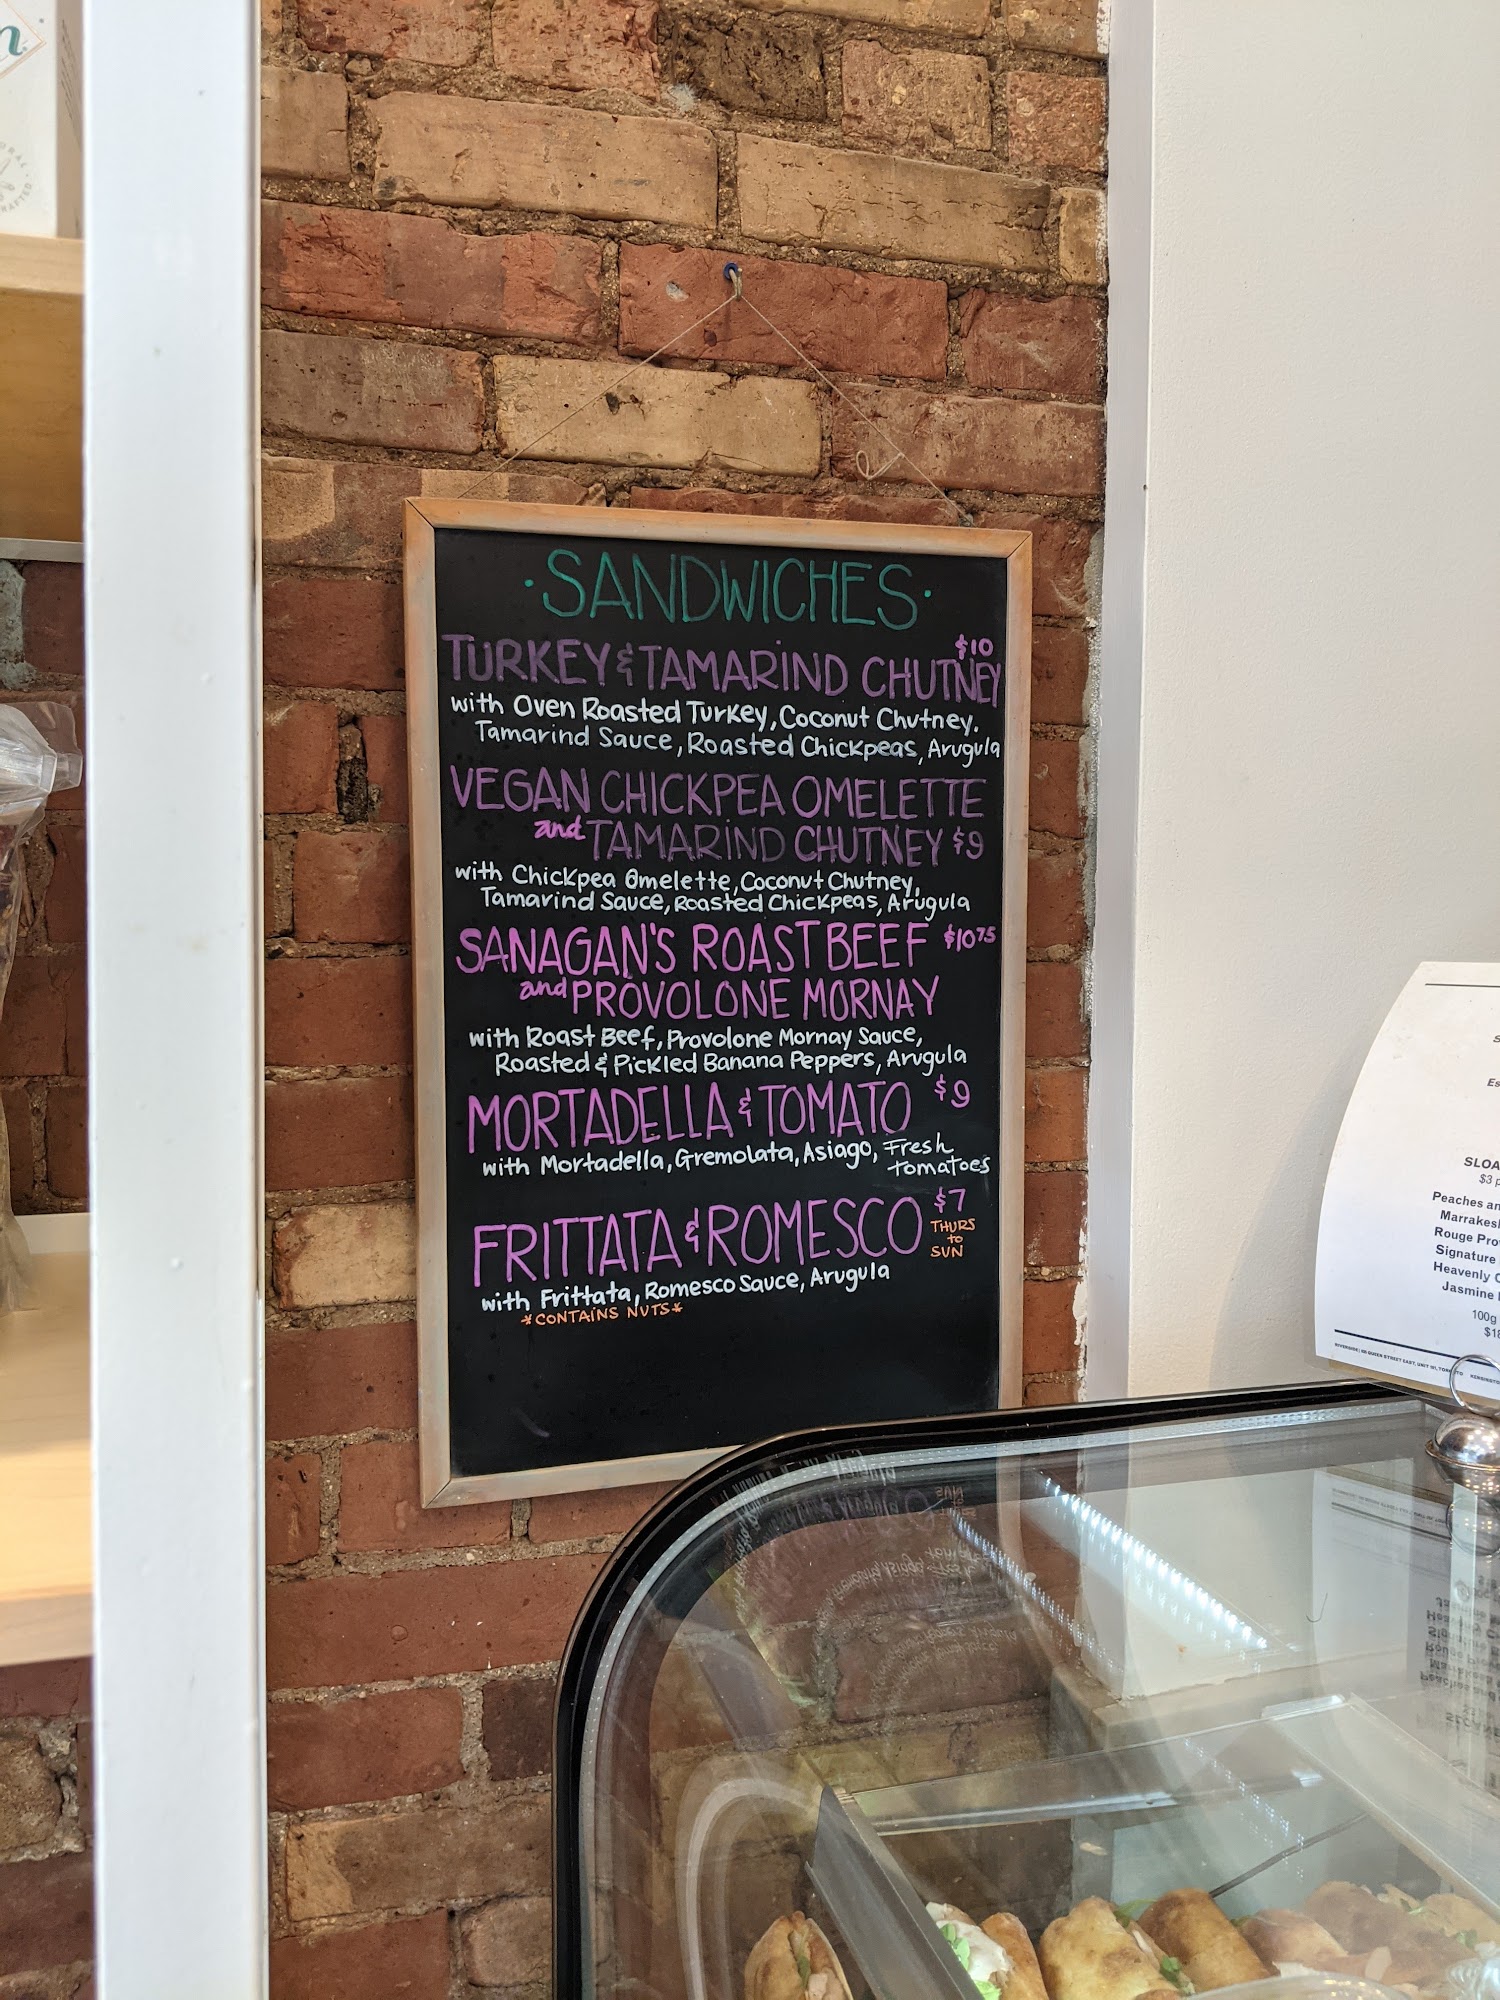 · SANDWICHES ·
TURKEY & TAMARIND CHUTNEY $10
with Oven Roasted Turkey, Coconut Chutney.
Tamarind Sauce, Roasted Chickpeas, Arugula
VEGAN CHICKPEA OMELETTE
and TAMARIND CHUTNEY $9
with Chickpea Omelette, Coconut Chutney,
Tamarind Sauce, Roasted Chickpeas, Arugula
SANAGAN'S ROAST BEEF $10.75
and PROVOLONE MORNAY
with Roast Beef, Provolone Mornay Sauce,
Roasted & Pickled Banana Peppers, Arugula
MORTADELLA & TOMATO $9
with Mortadella, Gremolata, Asiago, Fresh
Tomatoes
FRITTATA & ROMESCO $7
THURS
to
SUN
with Frittata, Romesco Sauce, Arugula
*CONTAINS NUTS*
$3
Peaches
Rouge
Signature
Heavenly
Jasmine
100g
RIVERSIDE | 88 QUEEN STREET EAST, UNIT